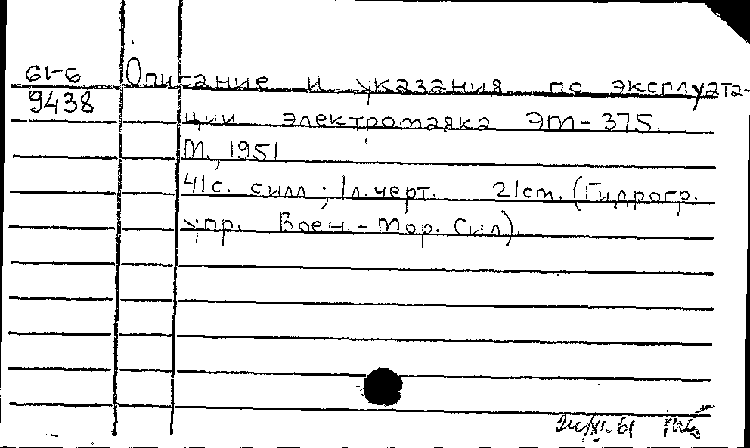 61-6
9438
Описание и указания по эксплуата-
ции электромаяка ЭМ-375.
М., 1951
41с. с илл; 1л.черт. 21см. (Гидрогр.
упр. Воен-Мор. Сил).